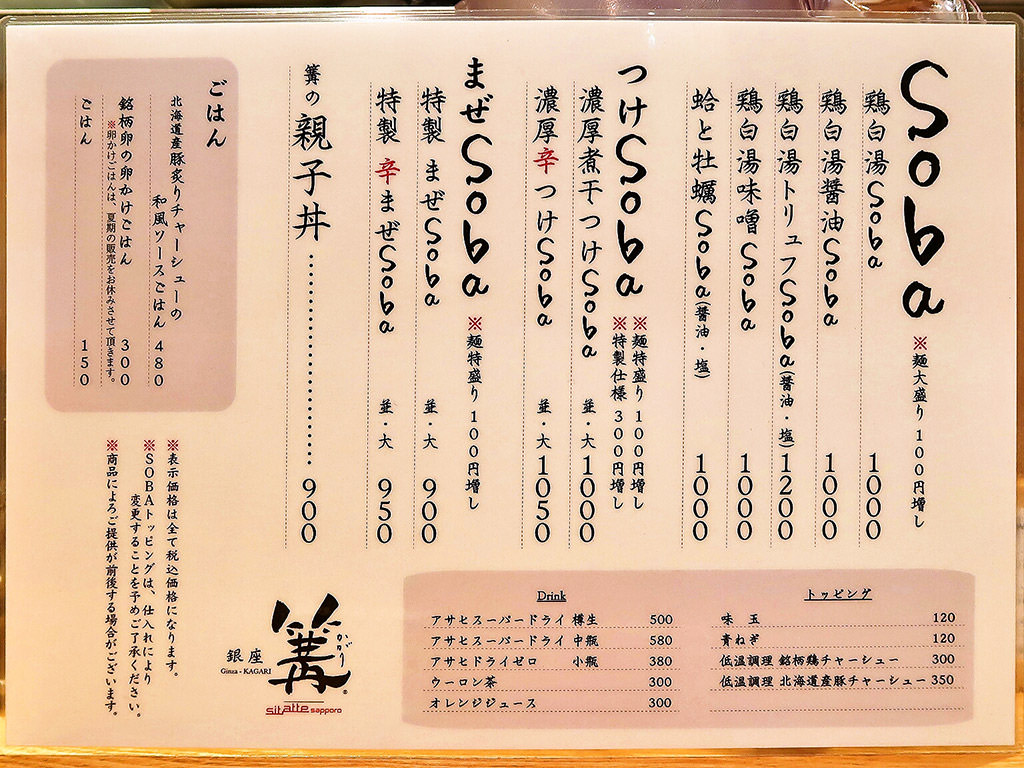 Soba ※麺大盛り 100円増し
鶏白湯Soba 1000
鶏白湯醤油Soba 1000
鶏白湯トリュフSoba(醤油・塩) 1200
鶏白湯味噌Soba 1000
蛤と牡蠣Soba(醤油・塩) 1000
つけSoba ※麺特盛り 100円増し
※特製仕様 300円増し
濃厚煮干つけSoba 並・大 1000
濃厚辛つけSoba 並・大 1050
まぜSoba ※麺特盛り 100円増し
特製 まぜSoba 並・大 900
特製 辛まぜSoba 並・大 950
篝の 親子丼 900
ごはん
北海道産豚炙りチャーシューの
和風ソースごはん 480
銘柄卵の卵かけごはん 300
※卵かけごはんは、夏期の販売をお休みさせて頂きます。
ごはん 150
※表示価格は全て税込価格になります。
※SOBAトッピングは、仕入れにより
変更することを予めご了承ください。
※商品によろご提供が前後する場合がございます。
銀座
Ginza - KAGARI
篝
かがり
sitatte sapporo
Drink
アサヒスーパードライ 樽生 500
アサヒスーパードライ 中瓶 580
アサヒドライゼロ 小瓶 380
ウーロン茶 300
オレンジジュース 300
トッピング
味 玉 120
青ねぎ 120
低温調理 銘柄鶏チャーシュー 300
低温調理 北海道産豚チャーシュー 350